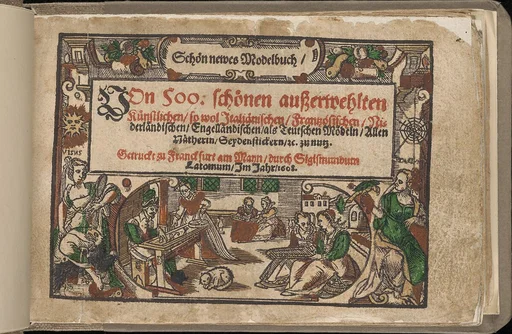 Schön newes Modelbuch /
VOn 500. schönen außerwehlten
Künstlichen / so wol Italiänischen / Frantzösischen / Ni-
derländischen / Engelländischen / als Teutschen Mödeln / Allen
Nätherin / Seydenstickern / ꝛc. zu nutz.
Getruckt zu Franckfurt am Mayn / durch Sigismundum
Latomum / Im Jahr / 1608.